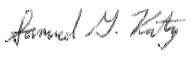 Samuel G. Katz